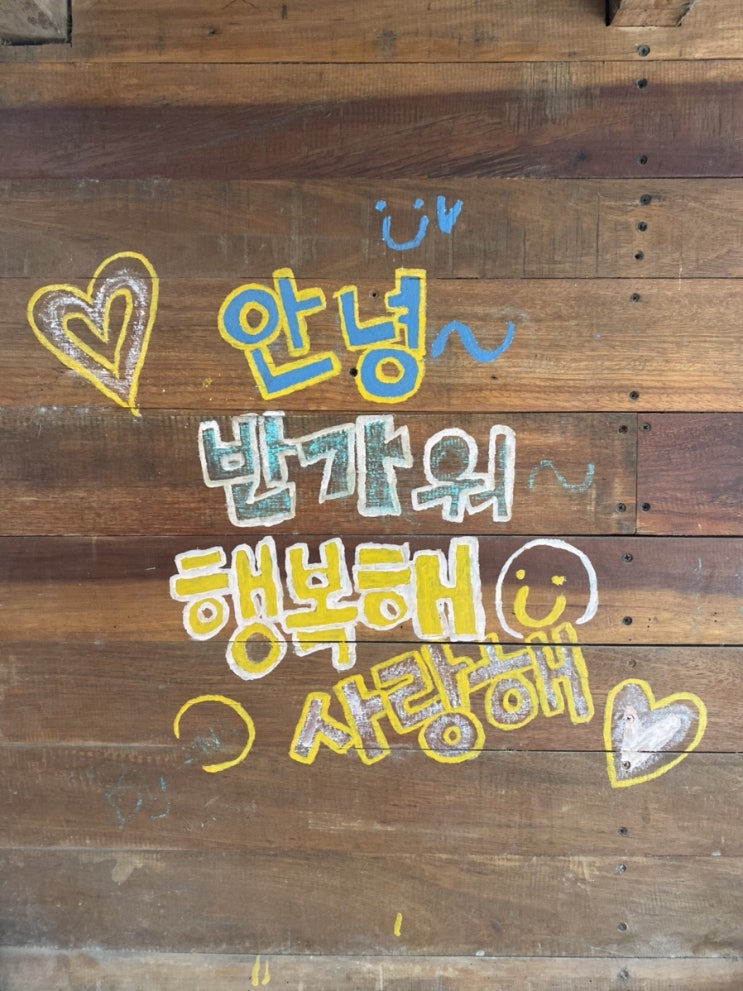 안녕~
반가워~
행복해
사랑해